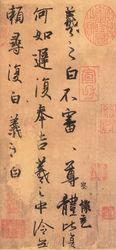 羲之白不審尊體比復
何如遲復奉告羲之中冷無
賴尋復白羲之白
察
懷充